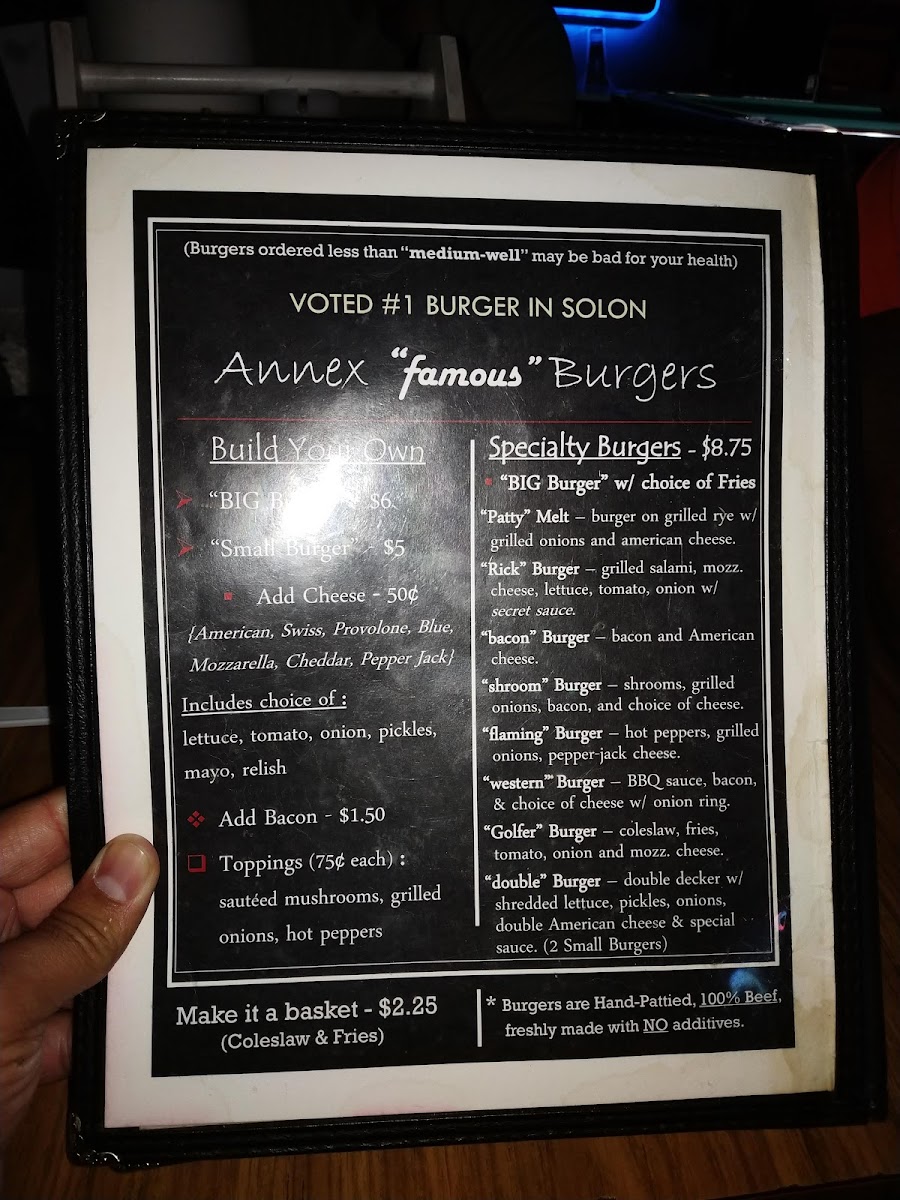 (Burgers ordered less than "medium-well" may be bad for your health)
VOTED #1 BURGER IN SOLON
Annex "famous" Burgers
Build Your Own
"BIG B $6
"Small Burger" - $5
Add Cheese - 50¢
{American, Swiss, Provolone, Blue,
Mozzarella, Cheddar, Pepper Jack}
Includes choice of :
lettuce, tomato, onion, pickles,
mayo, relish
Add Bacon - $1.50
Toppings (75¢ each) :
sautéed mushrooms, grilled
onions, hot peppers
Specialty Burgers - $8.75
"BIG Burger" w/ choice of Fries
"Patty" Melt – burger on grilled rye w/
grilled onions and american cheese.
"Rick" Burger – grilled salami, mozz.
cheese, lettuce, tomato, onion w/
secret sauce.
"bacon" Burger – bacon and American
cheese.
"shroom" Burger – shrooms, grilled
onions, bacon, and choice of cheese.
"flaming" Burger – hot peppers, grilled
onions, pepper-jack cheese.
"western"" Burger – BBQ sauce, bacon,
& choice of cheese w/ onion ring.
"Golfer" Burger – coleslaw, fries,
tomato, onion and mozz. cheese.
"double" Burger – double decker w/
shredded lettuce, pickles, onions,
double American cheese & special
sauce. (2 Small Burgers)
Make it a basket - $2.25
(Coleslaw & Fries)
* Burgers are Hand-Pattied, 100% Beef,
freshly made with NO additives.